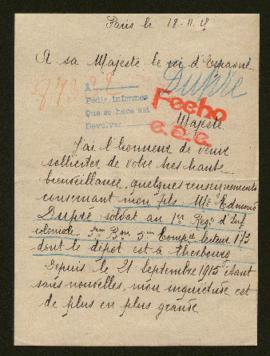 Paris le 18-11-15
A sa Majesté le roi d'Espagne
Dupré
A
Pedir informes
Que se hace así
Devolver
Fecho
Majesté
J'ai l'honneur de venir
solliciter de votre très haute
bienveillance, quelques renseignements
concernant mon fils Mr Edmond
Dupré soldat au 1er Reg. d'Inf
coloniale 3me Bon 5me Compie secteur 173
dont le dépot est à Cherbourg
Depuis le 21 septembre 1915 étant
sans nouvelles, mon inquiétude est
de plus en plus grande